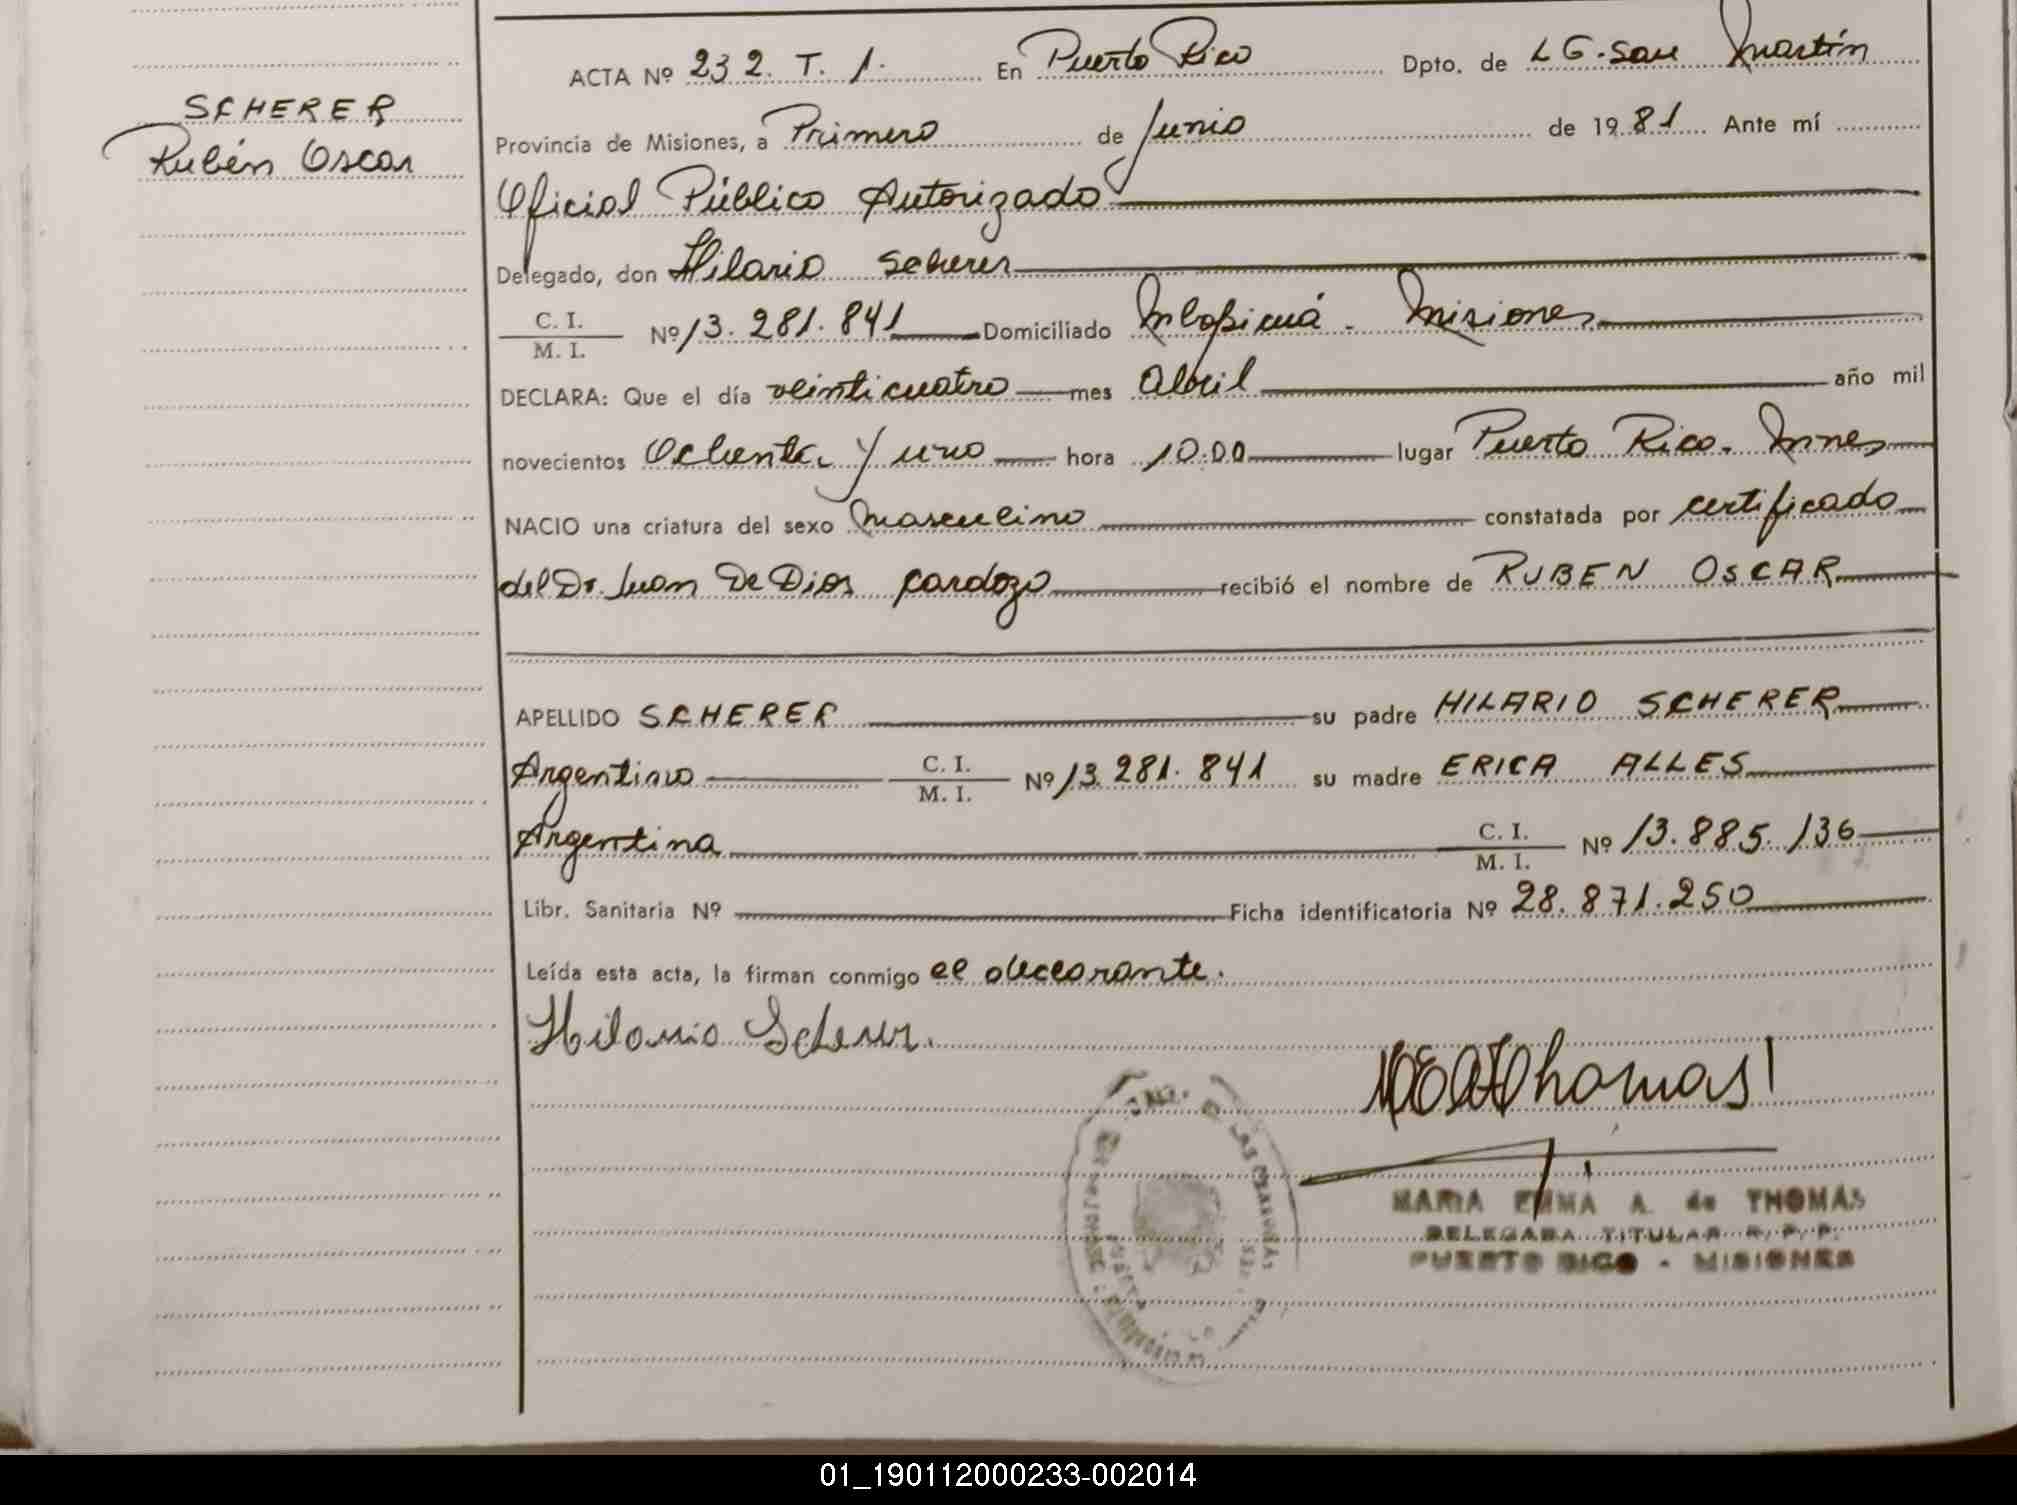 SCHERER
Rubén Oscar
ACTA Nº 232. T. 1. En Puerto Rico Dpto. de LG. San Martín
Provincia de Misiones, a Primero de Junio de 1981 Ante mí
Oficial Público Autorizado
Delegado, don Hilario Scherer
C. I.
M. I. Nº 13.281.841 Domiciliado Mbopicuá - Misiones
DECLARA: Que el día veinticuatro mes Abril año mil
novecientos Ochenta y uno hora 10:00 lugar Puerto Rico - Mnes
NACIO una criatura del sexo Masculino constatada por certificado
del Dr. Juan De Dios Cardozo recibió el nombre de RUBEN OSCAR
APELLIDO SCHERER su padre HILARIO SCHERER
Argentino C. I.
M. I. Nº 13.281.841 su madre ERICA ALLES
Argentina C. I.
M. I. Nº 13.885.136
Libr. Sanitaria Nº Ficha identificatoria Nº 28.871.250
Leída esta acta, la firman conmigo el declarante.
Hilario Scherer.
Thomas
MARIA EMMA A. de THOMAS
DELEGADA TITULAR R. P. P.
PUERTO RICO - MISIONES
01_190112000233-002014